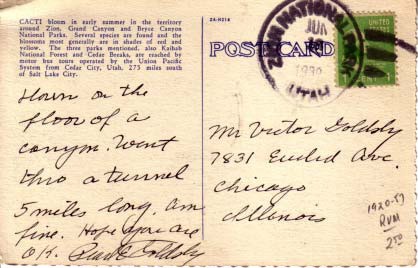 CACTI bloom in early summer in the territory
around Zion, Grand Canyon and Bryce Canyon
National Parks. Several species are found and the
blossoms most generally are in shades of red and
yellow. The three parks mentioned, also Kaibab
National Forest and Cedar Breaks, are reached by
motor bus tours operated by the Union Pacific
System from Cedar City, Utah, 275 miles south
of Salt Lake City.
Down on the
floor of a
canyon. Went
thro a tunnel
5 miles long. am
fine. Hope you are
O.K. Goldsby
2A-H218
POST CARD
ZION NATIONAL PARK
JUN
UTAH
UNITED STATES
1 CENT 1
Mr Victor Goldsby
7831 Euclid Ave.
Chicago
Illinois
1920-57
RVM
250